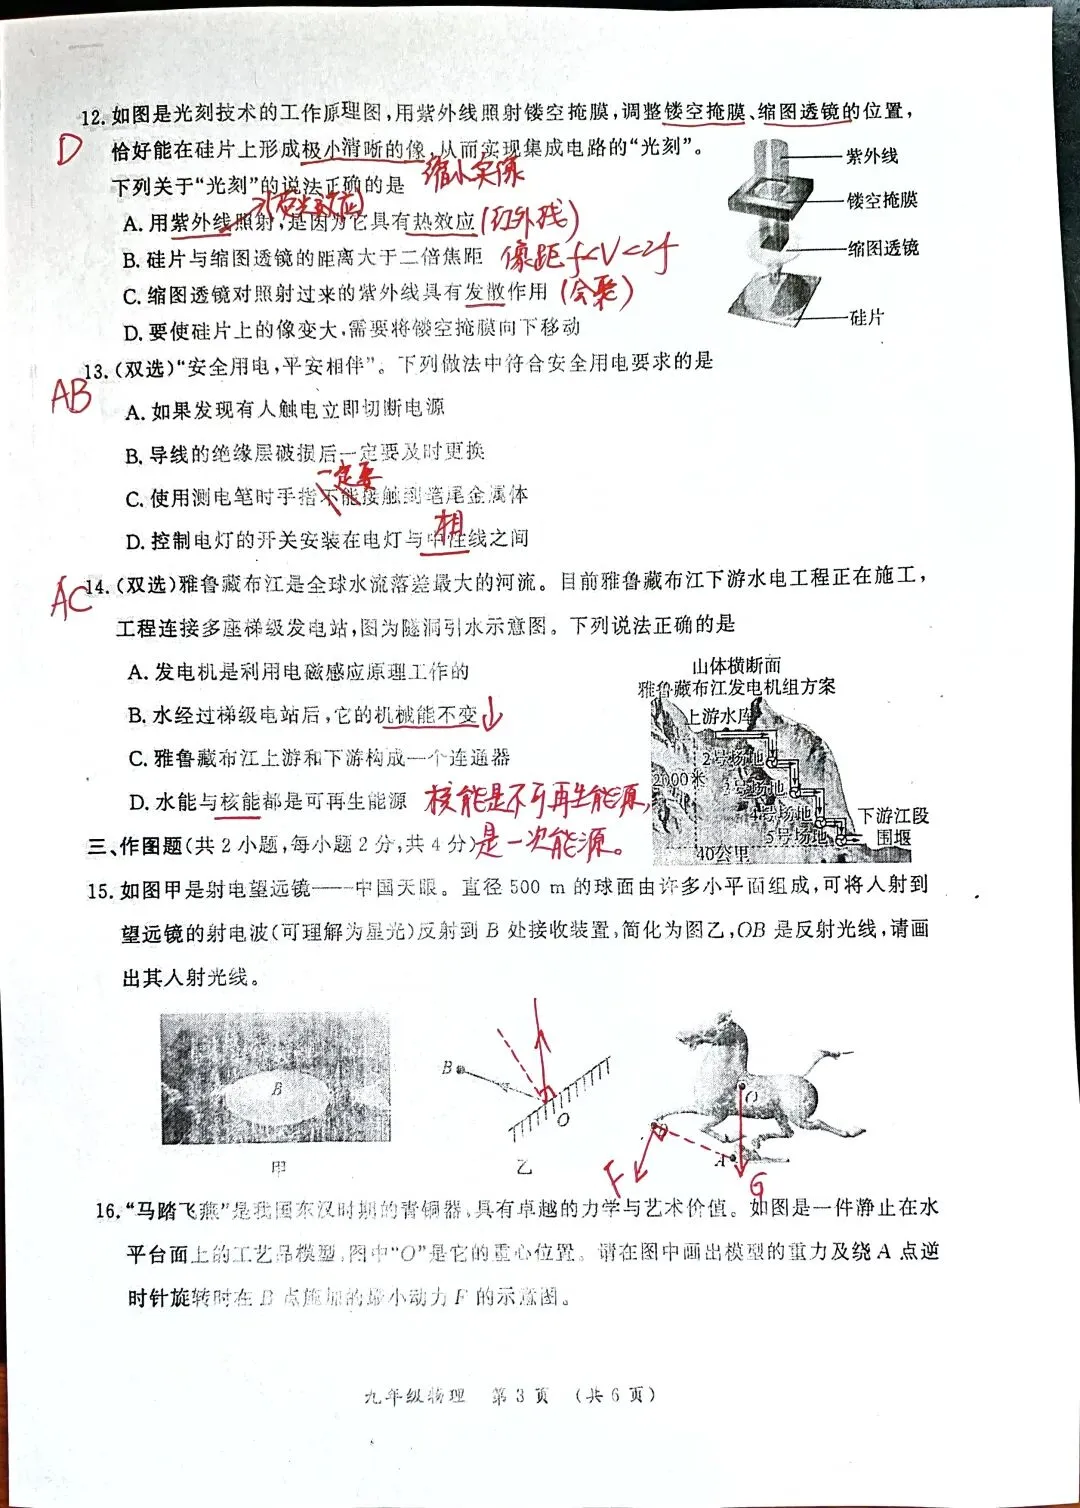 12.如图是光刻技术的工作原理图,用紫外线照射镂空掩膜,调整镂空掩膜、缩图透镜的位置,
D
恰好能在硅片上形成极小清晰的像,从而实现集成电路的“光刻”。
缩小实像
下列关于“光刻”的说法正确的是
紫外线
镂空掩膜
缩图透镜
硅片
A.用紫外线照射,是因为它具有热效应 (红外线)
B.硅片与缩图透镜的距离大于二倍焦距 像距 f<V<2f
C.缩图透镜对照射过来的紫外线具有发散作用 (会聚)
D.要使硅片上的像变大,需要将镂空掩膜向下移动
13.(双选)“安全用电,平安相伴”。下列做法中符合安全用电要求的是
AB
A.如果发现有人触电立即切断电源
B.导线的绝缘层破损后一定要及时更换
一定要
C.使用测电笔时手指不能接触到笔尾金属体
相
D.控制电灯的开关安装在电灯与中性线之间
14.(双选)雅鲁藏布江是全球水流落差最大的河流。目前雅鲁藏布江下游水电工程正在施工,
AC
工程连接多座梯级发电站,图为隧洞引水示意图。下列说法正确的是
A.发电机是利用电磁感应原理工作的
B.水经过梯级电站后,它的机械能不变↓
C.雅鲁藏布江上游和下游构成一个连通器
D.水能与核能都是可再生能源 核能是不可再生能源,
是一次能源。
山体横断面
雅鲁藏布江发电机组方案
上游水库
2号场地
2000米
3号场地
4号场地
5号场地
下游江段
围堰
40公里
三、作图题(共2小题,每小题2分,共4分)
15.如图甲是射电望远镜——中国天眼。直径500 m的球面由许多小平面组成,可将入射到
望远镜的射电波(可理解为星光)反射到B处接收装置,简化为图乙,OB是反射光线,请画
出其入射光线。
B
甲
B
O
乙
O
B
A
F
G
16.“马踏飞燕”是我国东汉时期的青铜器,具有卓越的力学与艺术价值。如图是一件静止在水
平台面上的工艺品模型,图中“O”是它的重心位置。请在图中画出模型的重力及绕A点逆
时针旋转时在B点施加的最小动力F的示意图。
九年级物理 第3页 (共6页)